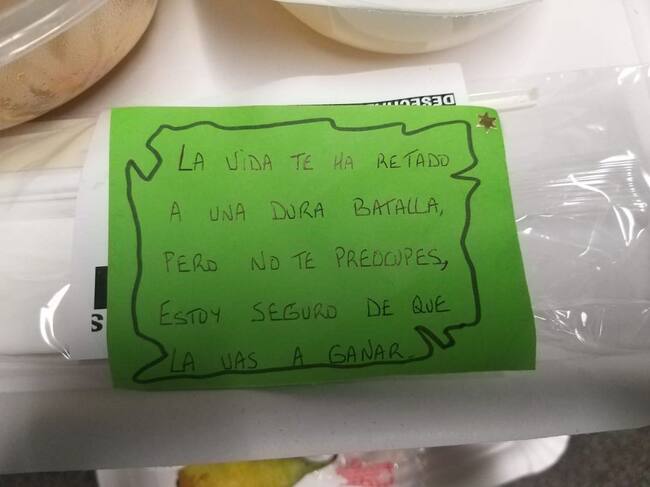 DESECHA
LA VIDA TE HA RETADO
A UNA DURA BATALLA,
PERO NO TE PREOCUPES,
ESTOY SEGURO DE QUE
LA VAS A GANAR.
S